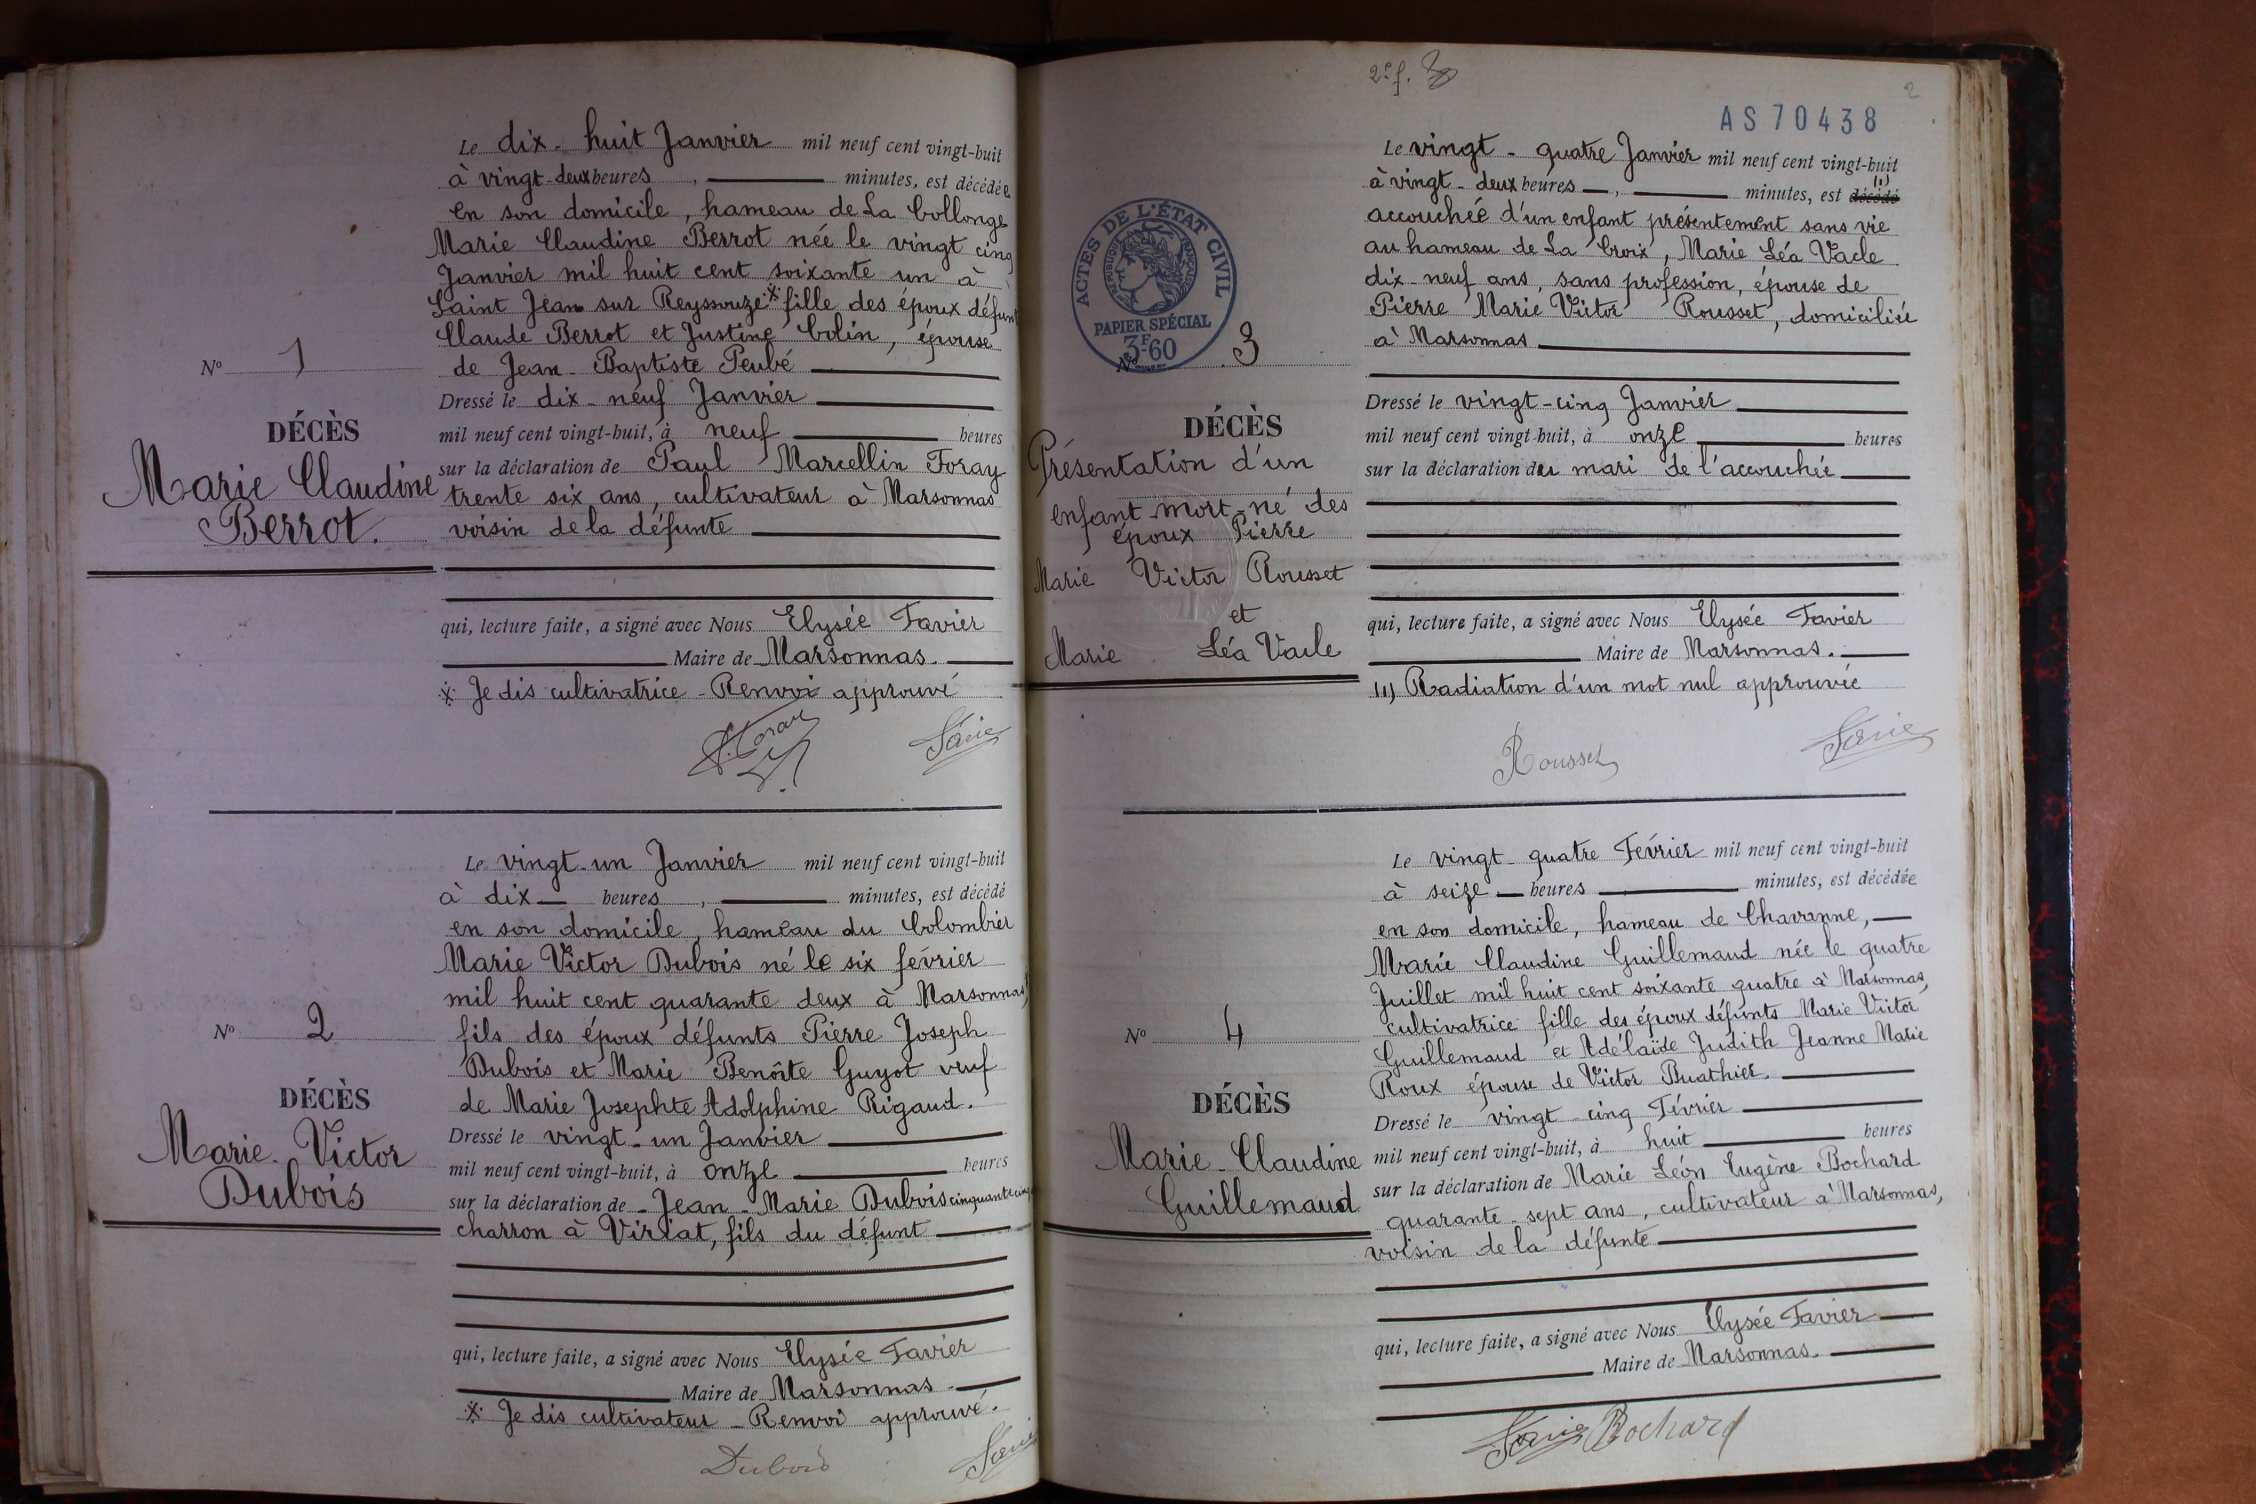 Le dix-huit Janvier mil neuf cent vingt-huit
à vingt-deux heures, minutes, est décédée
en son domicile, hameau de La Collonge
Marie Claudine Berrot née le vingt cinq
Janvier mil huit cent soixante un à
Saint Jean sur Reyssouze * fille des époux défunts
Claude Berrot et Justine Colin, épouse
de Jean-Baptiste Peubé
Nº 1
Dressé le dix-neuf Janvier
DÉCÈS
mil neuf cent vingt-huit, à neuf heures
Marie Claudine
Berrot.
sur la déclaration de Paul Marcellin Foray
trente six ans, cultivateur à Marsonnas
voisin de la défunte
qui, lecture faite, a signé avec Nous Elysée Favier
Maire de Marsonnas.
* Je dis cultivatrice - Renvoi approuvé
Le vingt-un Janvier mil neuf cent vingt-huit
à dix heures, minutes, est décédé
en son domicile, hameau du Colombier
Marie Victor Dubois né le six février
mil huit cent quarante deux à Marsonnas *
Nº 2
fils des époux défunts Pierre Joseph
Dubois et Marie Benoîte Guyot veuf
de Marie Josephte Adolphine Rigaud.
DÉCÈS
Marie-Victor
Dubois
Dressé le vingt-un Janvier
mil neuf cent vingt-huit, à onze heures
sur la déclaration de Jean-Marie Dubois cinquante cinq
charron à Viriat, fils du défunt
qui, lecture faite, a signé avec Nous Elysée Favier
Maire de Marsonnas
* Je dis cultivateur - Renvoi approuvé.
Dubois
2e f.
2
AS 70438
Le vingt-quatre Janvier mil neuf cent vingt-huit
à vingt-deux heures, minutes, est décédé (1)
accouchée d'un enfant présentement sans vie
au hameau de La Croix, Marie Léa Vacle
dix-neuf ans, sans profession, épouse de
Pierre Marie Victor Rousset, domiciliée
à Marsonnas
ACTES DE L'ÉTAT CIVIL
RÉPUBLIQUE FRANÇAISE
PAPIER SPÉCIAL
3F60
Nº 3
DÉCÈS
Présentation d'un
enfant mort-né des
époux Pierre
Marie Victor Rousset
et
Marie Léa Vacle
Dressé le vingt-cinq Janvier
mil neuf cent vingt-huit, à onze heures
sur la déclaration du mari de l'accouchée
qui, lecture faite, a signé avec Nous Elysée Favier
Maire de Marsonnas.
(1) Radiation d'un mot nul approuvée
Rousset
Le vingt-quatre Février mil neuf cent vingt-huit
à seize heures minutes, est décédée
en son domicile, hameau de Chavanne,
Marie Claudine Guillemaud née le quatre
Juillet mil huit cent soixante quatre à Marsonnas,
cultivatrice fille des époux défunts Marie Victor
Guillemaud et Adélaïde Judith Jeanne Marie
Roux épouse de Victor Buathier.
Nº 4
DÉCÈS
Marie-Claudine
Guillemaud
Dressé le vingt-cinq Février
mil neuf cent vingt-huit, à huit heures
sur la déclaration de Marie Léon Eugène Bochard
quarante-sept ans, cultivateur à Marsonnas,
voisin de la défunte
qui, lecture faite, a signé avec Nous Elysée Favier
Maire de Marsonnas.
Bochard